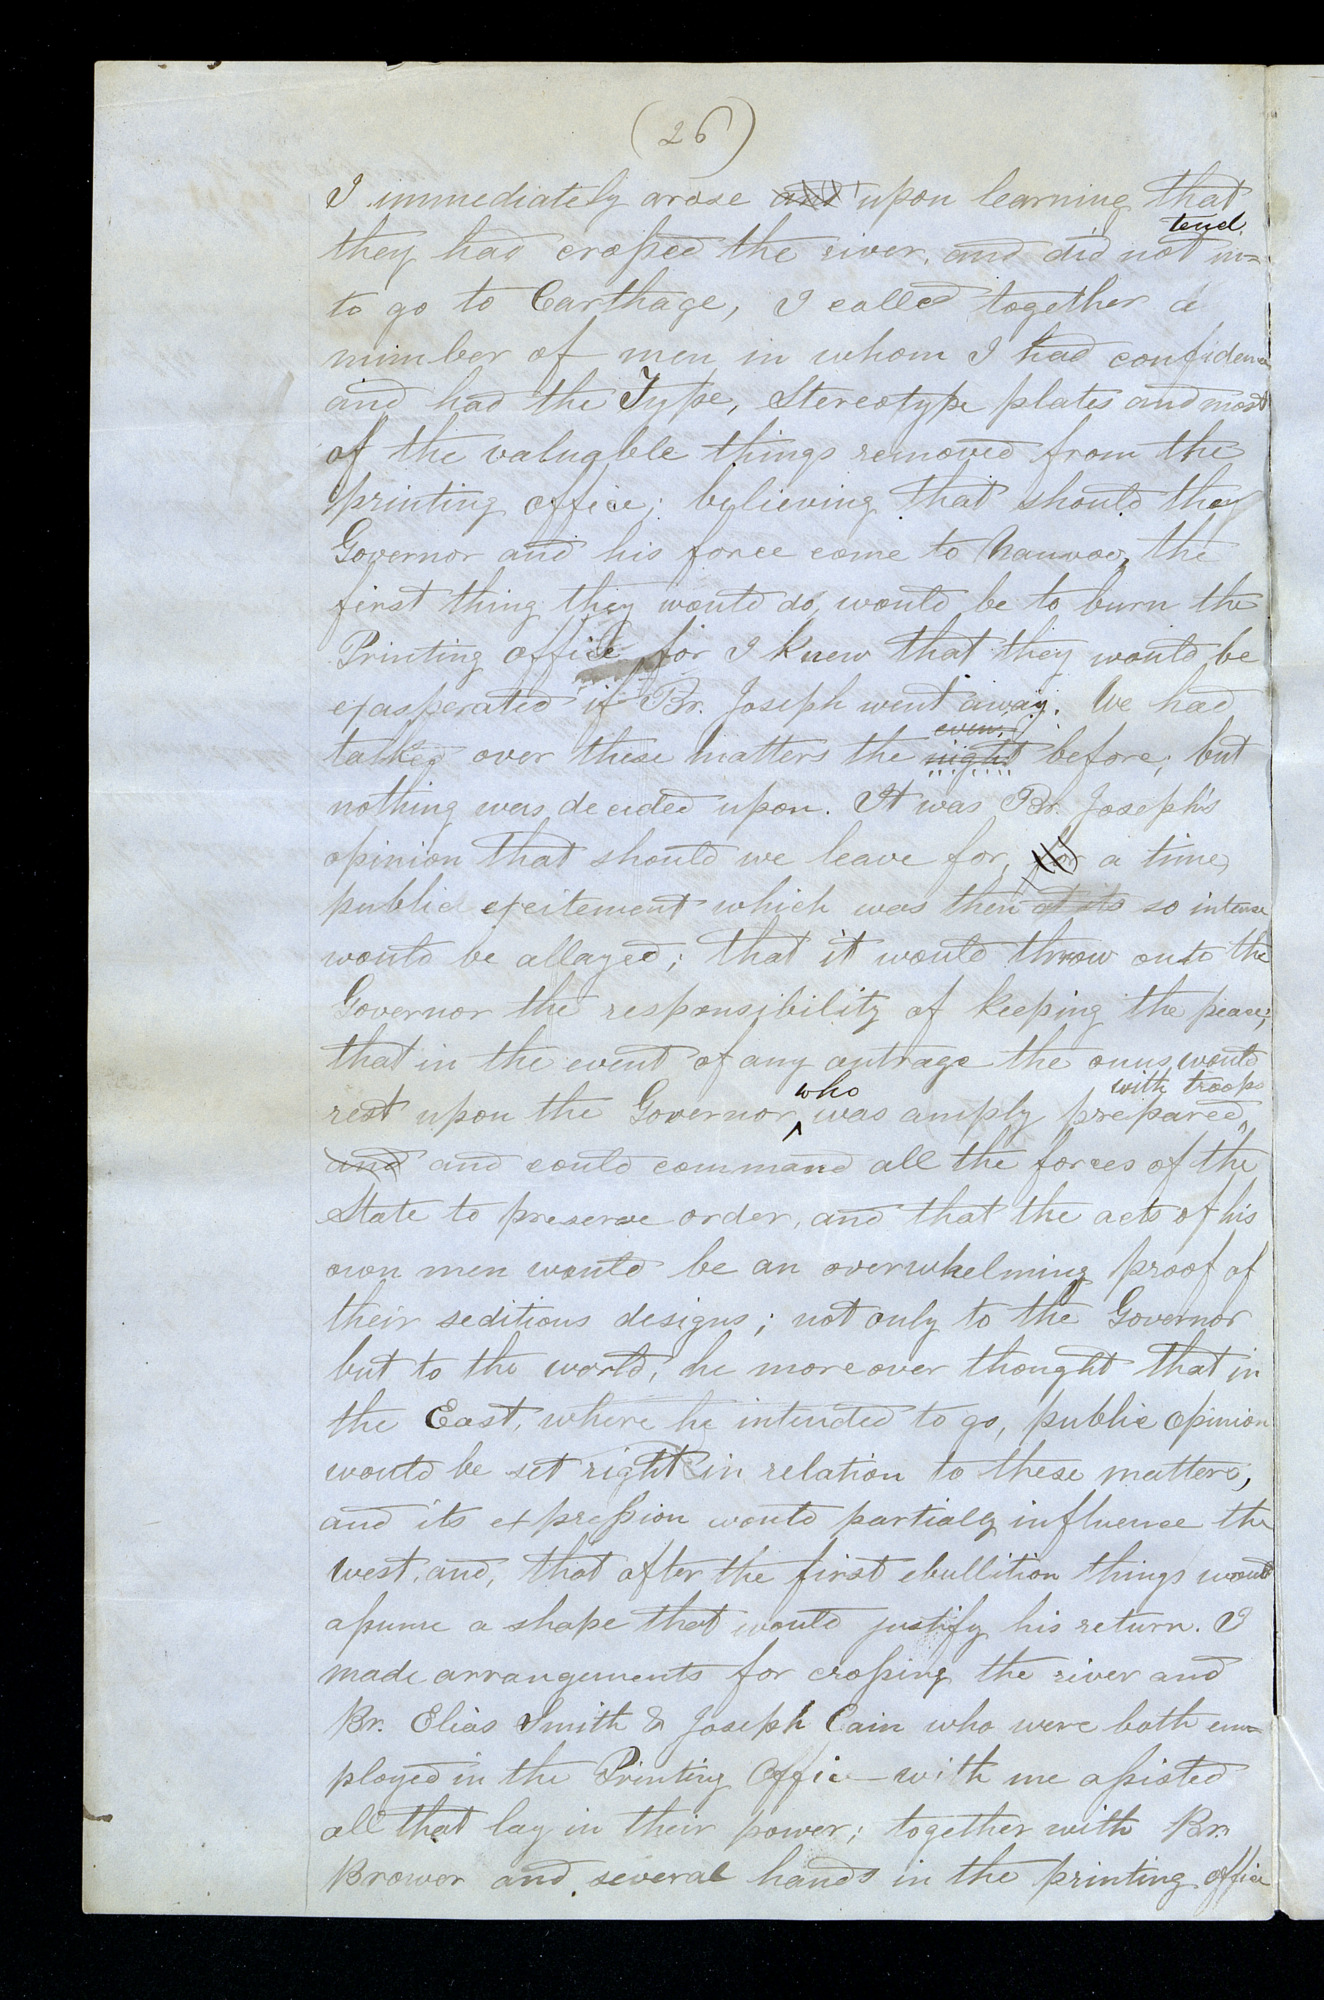 (26)
I immediately arose and upon learning that
they had crossed the river, and did not in=
tend
to go to Carthage, I called together a
number of men in whom I had confidence
and had the Type, Stereotype plates and most
of the valuable things removed from the
printing office; believing that should the
Governor and his force come to Nauvoo, the
first thing they would do, would be to burn the
Printing office for I knew that they would be
exasperated if Br. Joseph went away. We had
even.g
talked over these matters the night before; but
nothing was decided upon. It was Br. Joseph's
opinion that should we leave for, for a time,
public excitement which was then at its so intense
would be allayed; that it would throw onto the
Governor the responsibility of keeping the peace;
that in the event of any outrage the onus would
who with troops
rest upon the Governor, was amply prepared,
and and could command all the forces of the
State to preserve order, and that the acts of his
own men would be an overwhelming proof of
their seditious designs; not only to the Governor
but to the world; he moreover thought that in
the East, where he intended to go, public opinion
would be set right in relation to these matters,
and its expression would partialy influence the
west, and, that after the first ebullition things would
assume a shape that would justify his return. I
made arrangements for crossing the river and
Br. Elias Smith & Joseph Cain who were both em=
ployed in the Printing Office with me assisted
all that lay in their power; together with Br.
Brower and several hands in the printing office